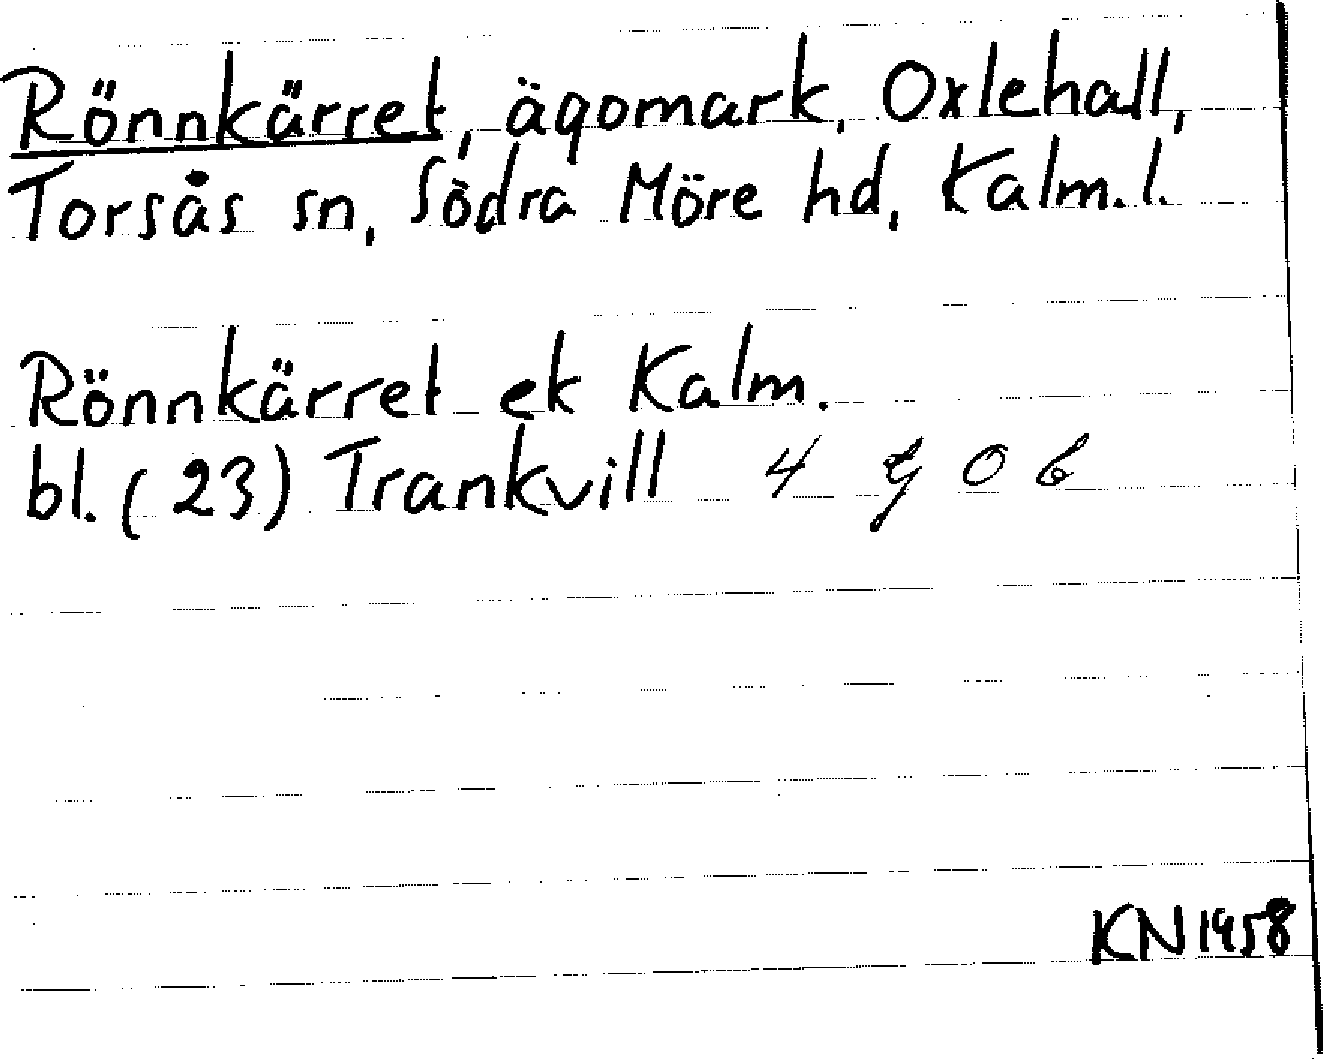 Rönnkärret, ägomark, Oxlehall,
Torsås sn, Södra Möre hd, Kalm.l.
Rönnkärret ek Kalm.
bl. (23) Trankvill 4 g 0 b
KN 1958